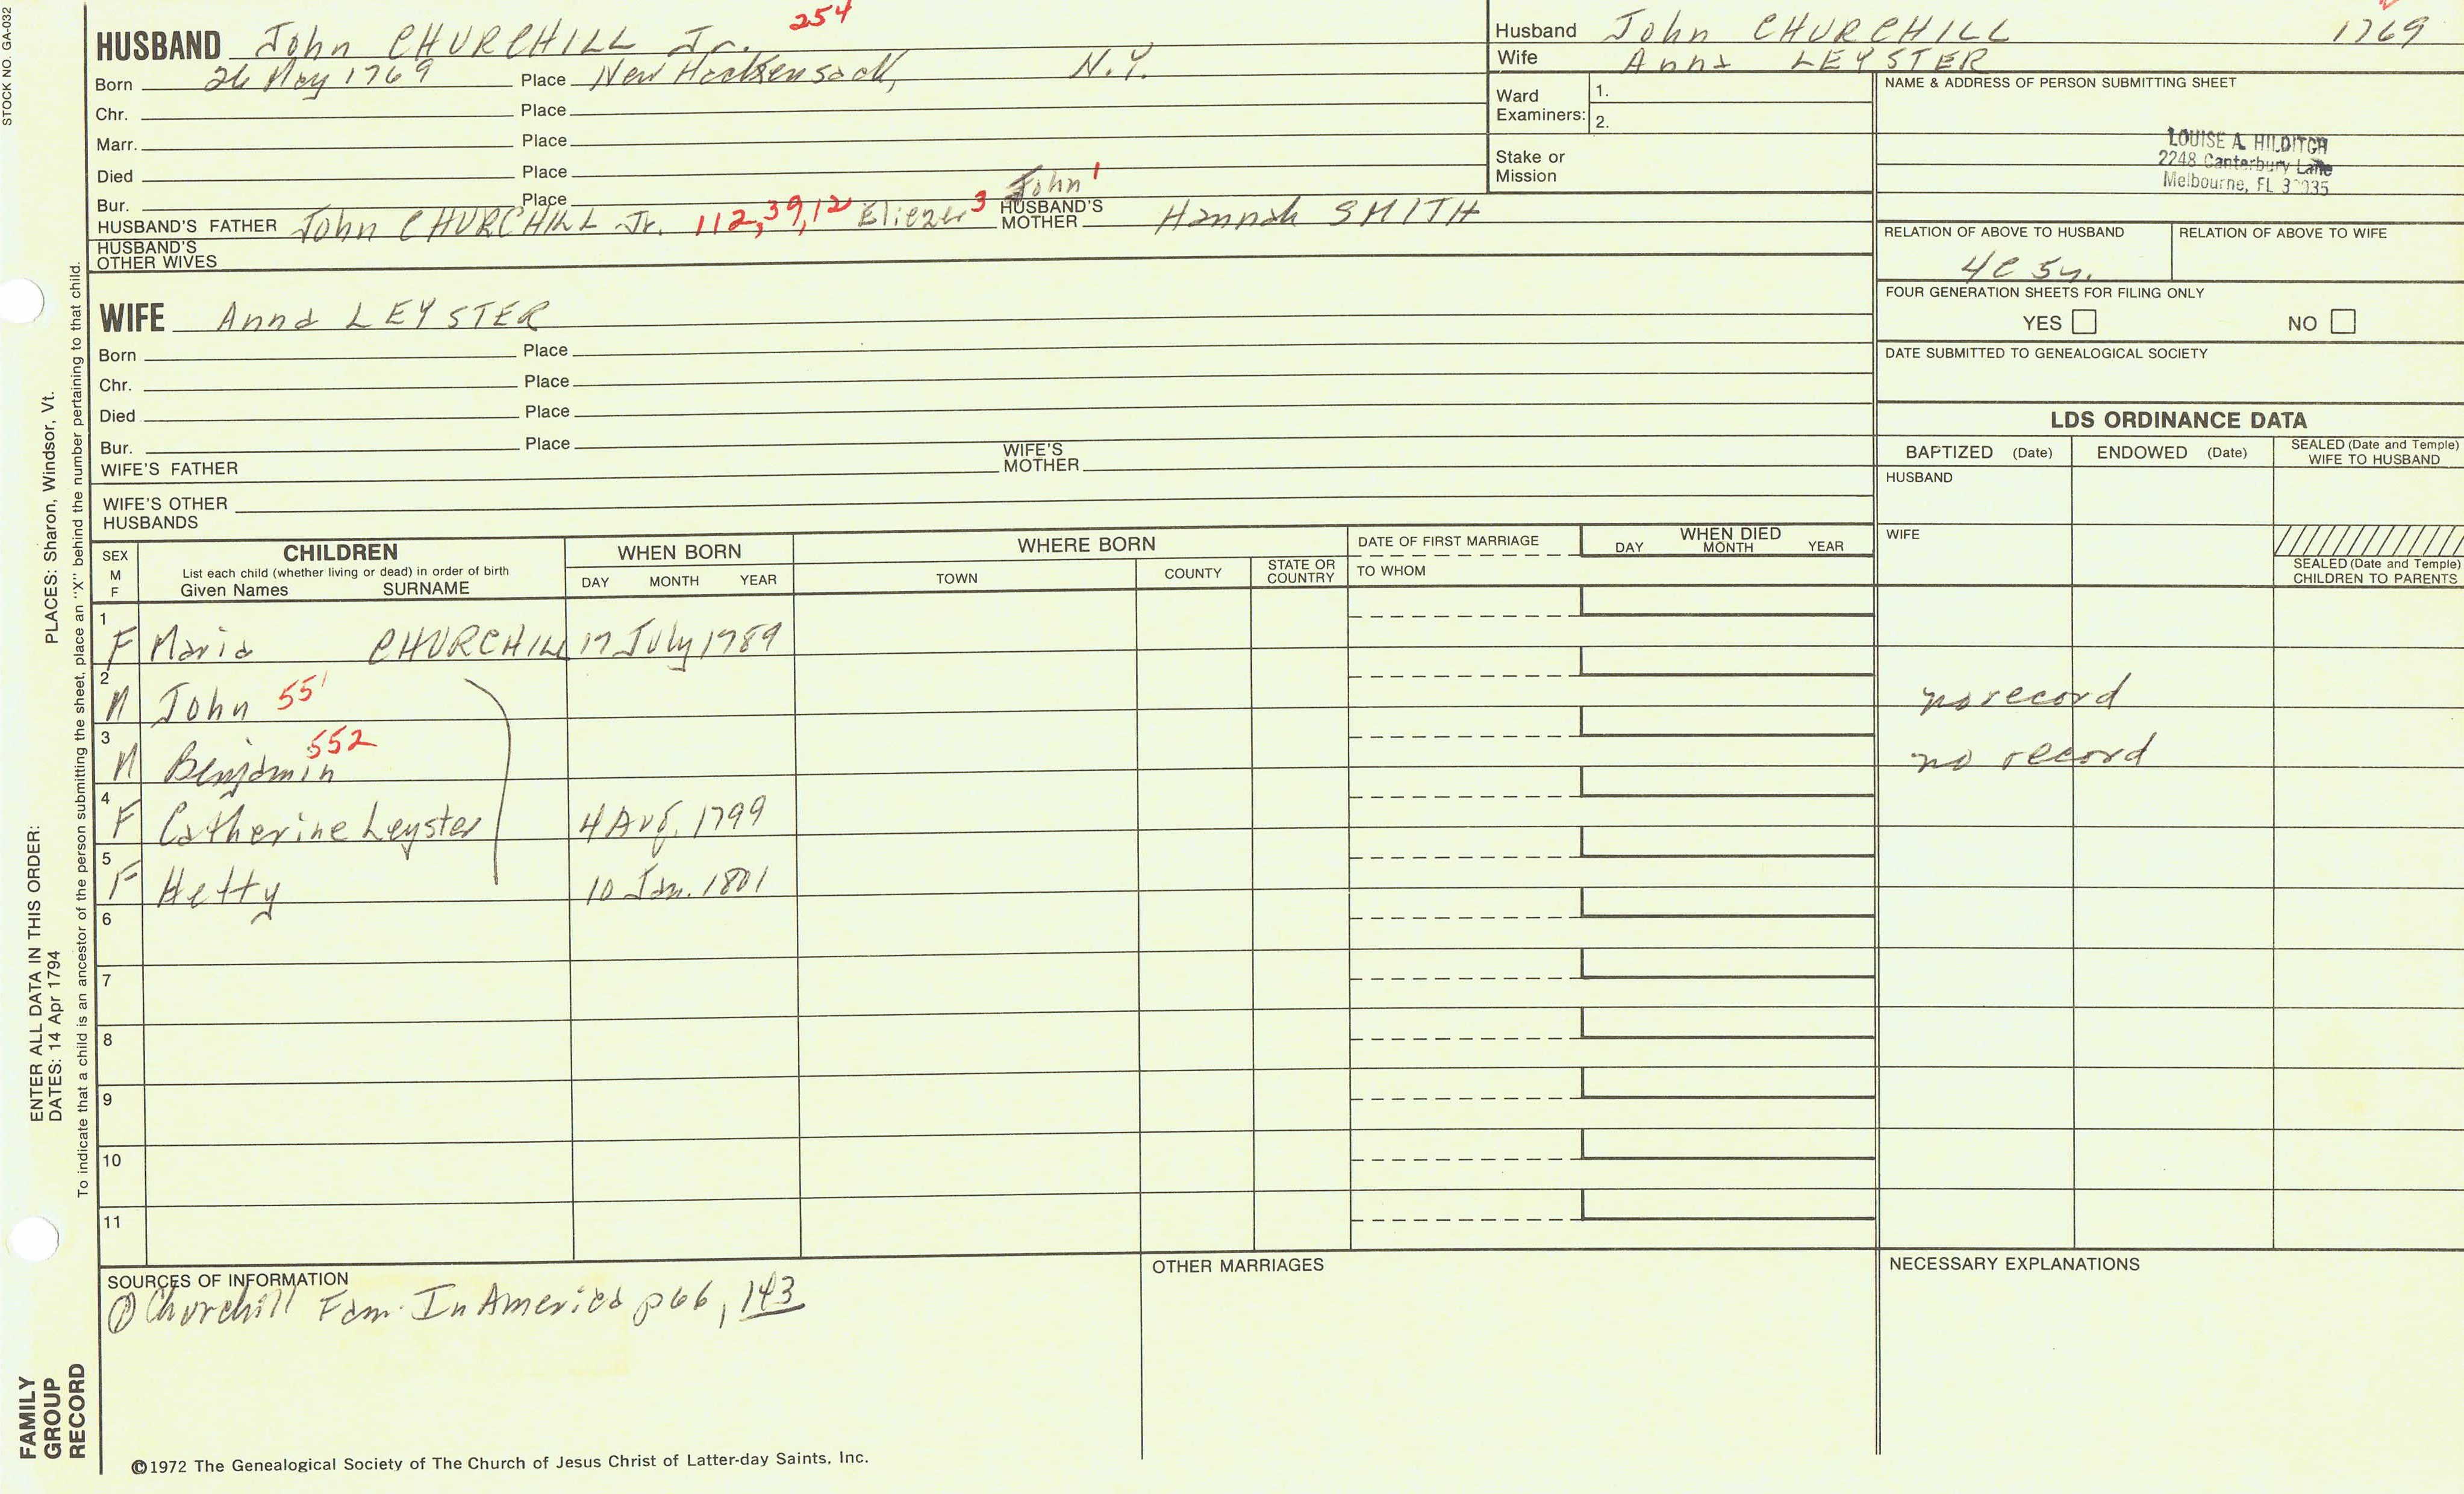 STOCK NO. GA-032
HUSBAND John CHURCHILL Jr. 254
Born 26 May 1769 Place New Hackensack, N.Y.
Chr. Place
Marr. Place
Died Place
Bur. Place
John 1
HUSBAND'S FATHER John CHURCHILL Jr. 112, 39, 12 Eliezer 3 HUSBAND'S MOTHER Hannah SMITH
HUSBAND'S OTHER WIVES
WIFE Anna LEYSTER
Born Place
Chr. Place
Died Place
Bur. Place
WIFE'S FATHER WIFE'S MOTHER
WIFE'S OTHER HUSBANDS
Husband John CHURCHILL 1769
Wife Anna LEYSTER
Ward Examiners: 1.
2.
Stake or Mission
NAME & ADDRESS OF PERSON SUBMITTING SHEET
LOUISE A. HILDITCH
2248 Canterbury Lane
Melbourne, FL
RELATION OF ABOVE TO HUSBAND RELATION OF ABOVE TO WIFE
4C 5
FOUR GENERATION SHEETS FOR FILING ONLY
YES NO
DATE SUBMITTED TO GENEALOGICAL SOCIETY
LDS ORDINANCE DATA
BAPTIZED (Date) ENDOWED (Date) SEALED (Date and Temple) WIFE TO HUSBAND
HUSBAND
WIFE
SEALED (Date and Temple) CHILDREN TO PARENTS
SEX M F
CHILDREN
List each child (whether living or dead) in order of birth
Given Names SURNAME
WHEN BORN
DAY MONTH YEAR
WHERE BORN
TOWN COUNTY STATE OR COUNTRY
DATE OF FIRST MARRIAGE
TO WHOM
WHEN DIED
DAY MONTH YEAR
1 F Maria CHURCHILL 17 July 1789
2 M John 551 no record
3 M Benjamin 552 no record
4 F Catherine Leyster 4 Aug. 1799
5 F Hetty 10 Jan. 1801
6
7
8
9
10
11
SOURCES OF INFORMATION
① Churchill Fam. In America p66, 143
OTHER MARRIAGES
NECESSARY EXPLANATIONS
©1972 The Genealogical Society of The Church of Jesus Christ of Latter-day Saints, Inc.
ENTER ALL DATA IN THIS ORDER: PLACES: Sharon, Windsor, Vt.
DATES: 14 Apr 1794
To indicate that a child is an ancestor of the person submitting the sheet, place an "X" behind the number pertaining to that child.
FAMILY
GROUP
RECORD